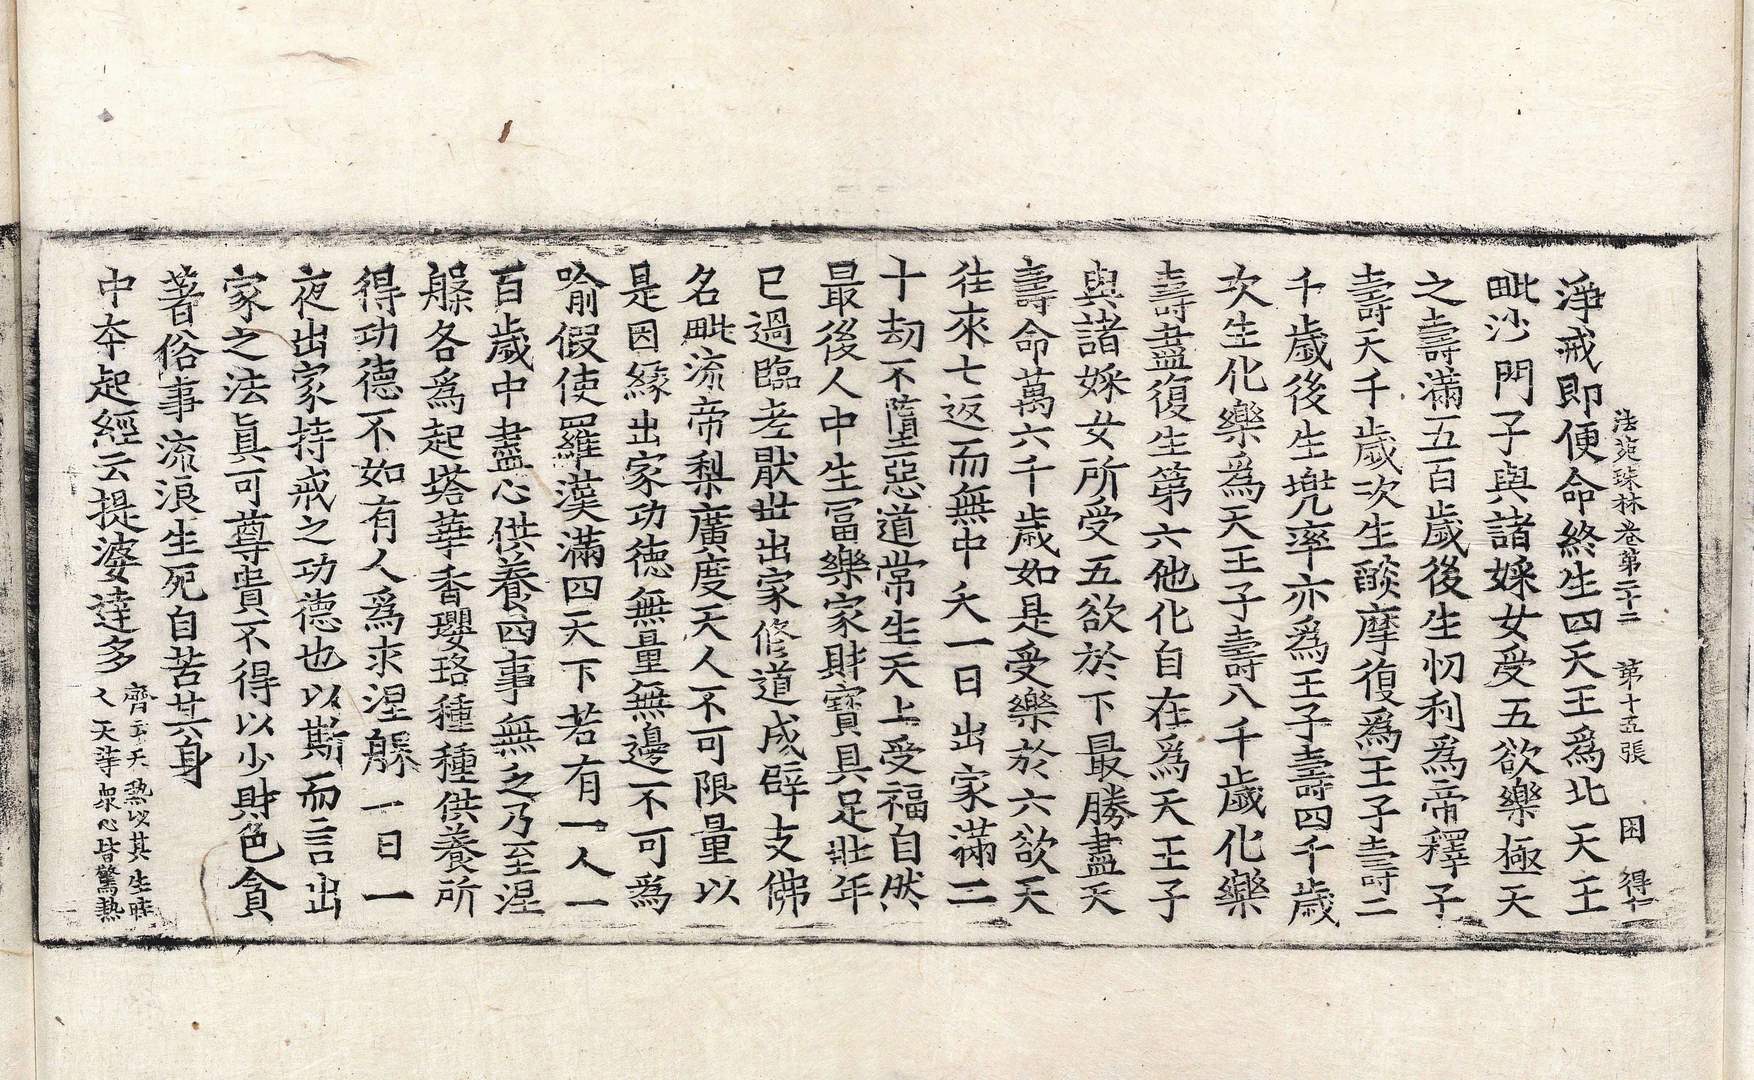 法苑珠林卷第二十二　第十五張　困　得仁
淨戒即便命終生四天王爲北天王
毗沙門子與諸婇女受五欲樂極天
之壽滿五百歲後生忉利爲帝釋子
壽天千歲次生燄摩復爲王子壽二
千歲後生兠率亦爲王子壽四千歲
次生化樂爲天王子壽八千歲化樂
壽盡復生第六他化自在爲天王子
與諸婇女所受五欲於下最勝盡天
壽命萬六千歲如是受樂於六欲天
往來七返而無中夭一日出家滿二
十劫不墮惡道常生天上受福自然
最後人中生冨樂家財寶具足壯年
巳過臨老猒世出家修道成辟支佛
名毗流帝梨廣度天人不可限量以
是因緣出家功德無量無邊不可爲
喻假使羅漢滿四天下若有一人一
百歲中盡心供養四事無乏乃至涅
槃各爲起塔華香瓔珞種種供養所
得功德不如有人爲求涅槃一日一
夜出家持戒之功德也以斯而言出
家之法眞可尊貴不得以少財色貪
著俗事流浪生死自苦其身
中夲起經云提婆達多
齊云天熱以其生時
人天等衆心皆驚熱